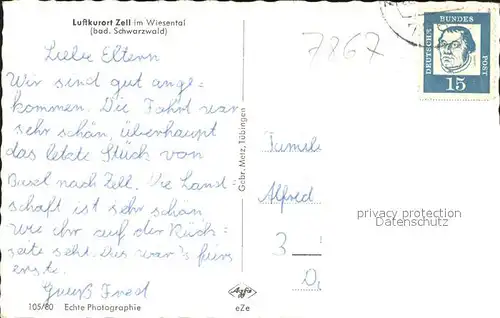 Luftkurort Zell im Wiesental
(bad. Schwarzwald)
Liebe Eltern
Wir sind gut ange-
kommen. Die Fahrt war
sehr schön, überhaupt
das letzte Stück von
Basel nach Zell. Die Land-
schaft ist sehr schön
wie ihr auf der Rück-
seite seht. Das war's fürs
erste.
Gruß Fred
105/60 Echte Photographie
Gebr. Metz, Tübingen
Agfa
eZe
7867
DEUTSCHE BUNDESPOST
15
Familie
Alfred
3
privacy protection
Datenschutz